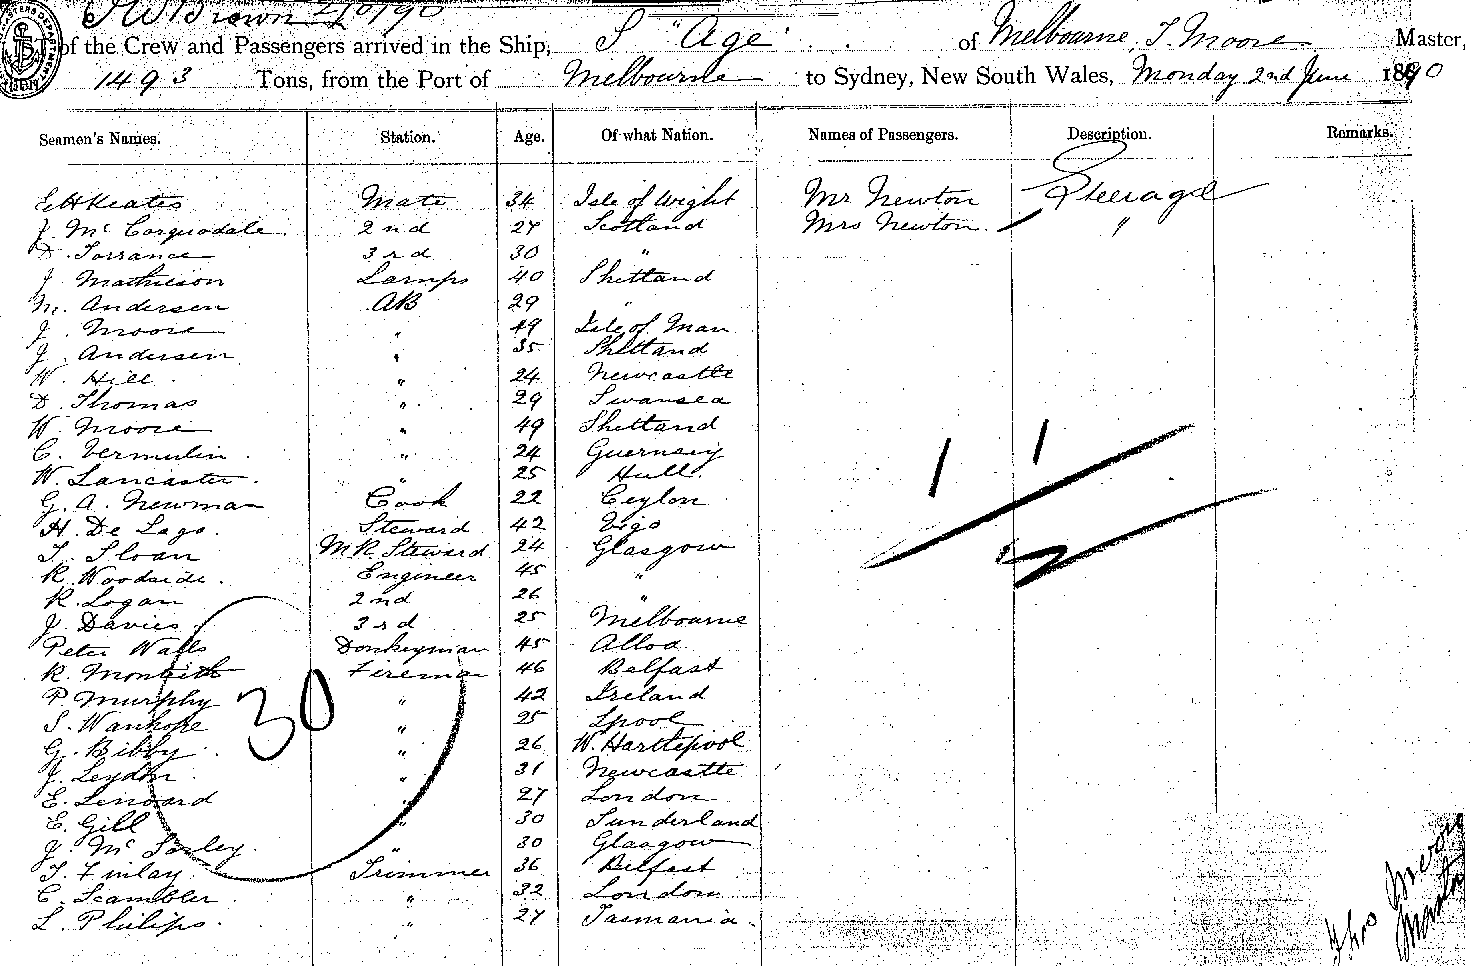 of the Crew and Passengers arrived in the Ship, S "Age" of Melbourne, T. Moore Master,
1493 Tons, from the Port of Melbourne to Sydney, New South Wales, Monday 2nd June 1890
Seamen's Names. Station. Age. Of what Nation. Names of Passengers. Description. Remarks.
E H Keates Mate 34 Isle of Wight Mr Newton Steerage
J. Mc Corquodale 2nd 27 Scotland Mrs Newton "
D. Torrance 3rd 30 "
J. Mathieson Lamps 40 Shetland
M. Andersen AB 29 "
J. Moore " 49 Isle of Man
J. Andersen " 35 Shetland
W. Hill " 24 Newcastle
D. Thomas " 29 Swansea
W. Moore " 49 Shetland
C. Vermulin " 24 Guernsey
W. Lancaster " 25 Hull
G. A. Newman Cook 22 Ceylon
H. De Lago Steward 42 Vigo
T. Sloan MR Steward 24 Glasgow
R. Woodside Engineer 45 "
R. Logan 2nd 26 "
J. Davies 3rd 25 Melbourne
Peter Walls Donkeyman 45 Alloa
R. Monteith Fireman 46 Belfast
P. Murphy " 42 Ireland
S. Wanhope " 25 Lpool
G. Bibby " 26 W. Hartlepool
J. Leydon " 31 Newcastle
E. Lenward " 27 London
E. Gill " 30 Sunderland
J. Mc Sorley " 30 Glasgow
T. Finlay Trimmer 36 Belfast
C. Scambler " 32 London
L. Philips " 27 Tasmania
30
1 1
2
Thos Moore
Master